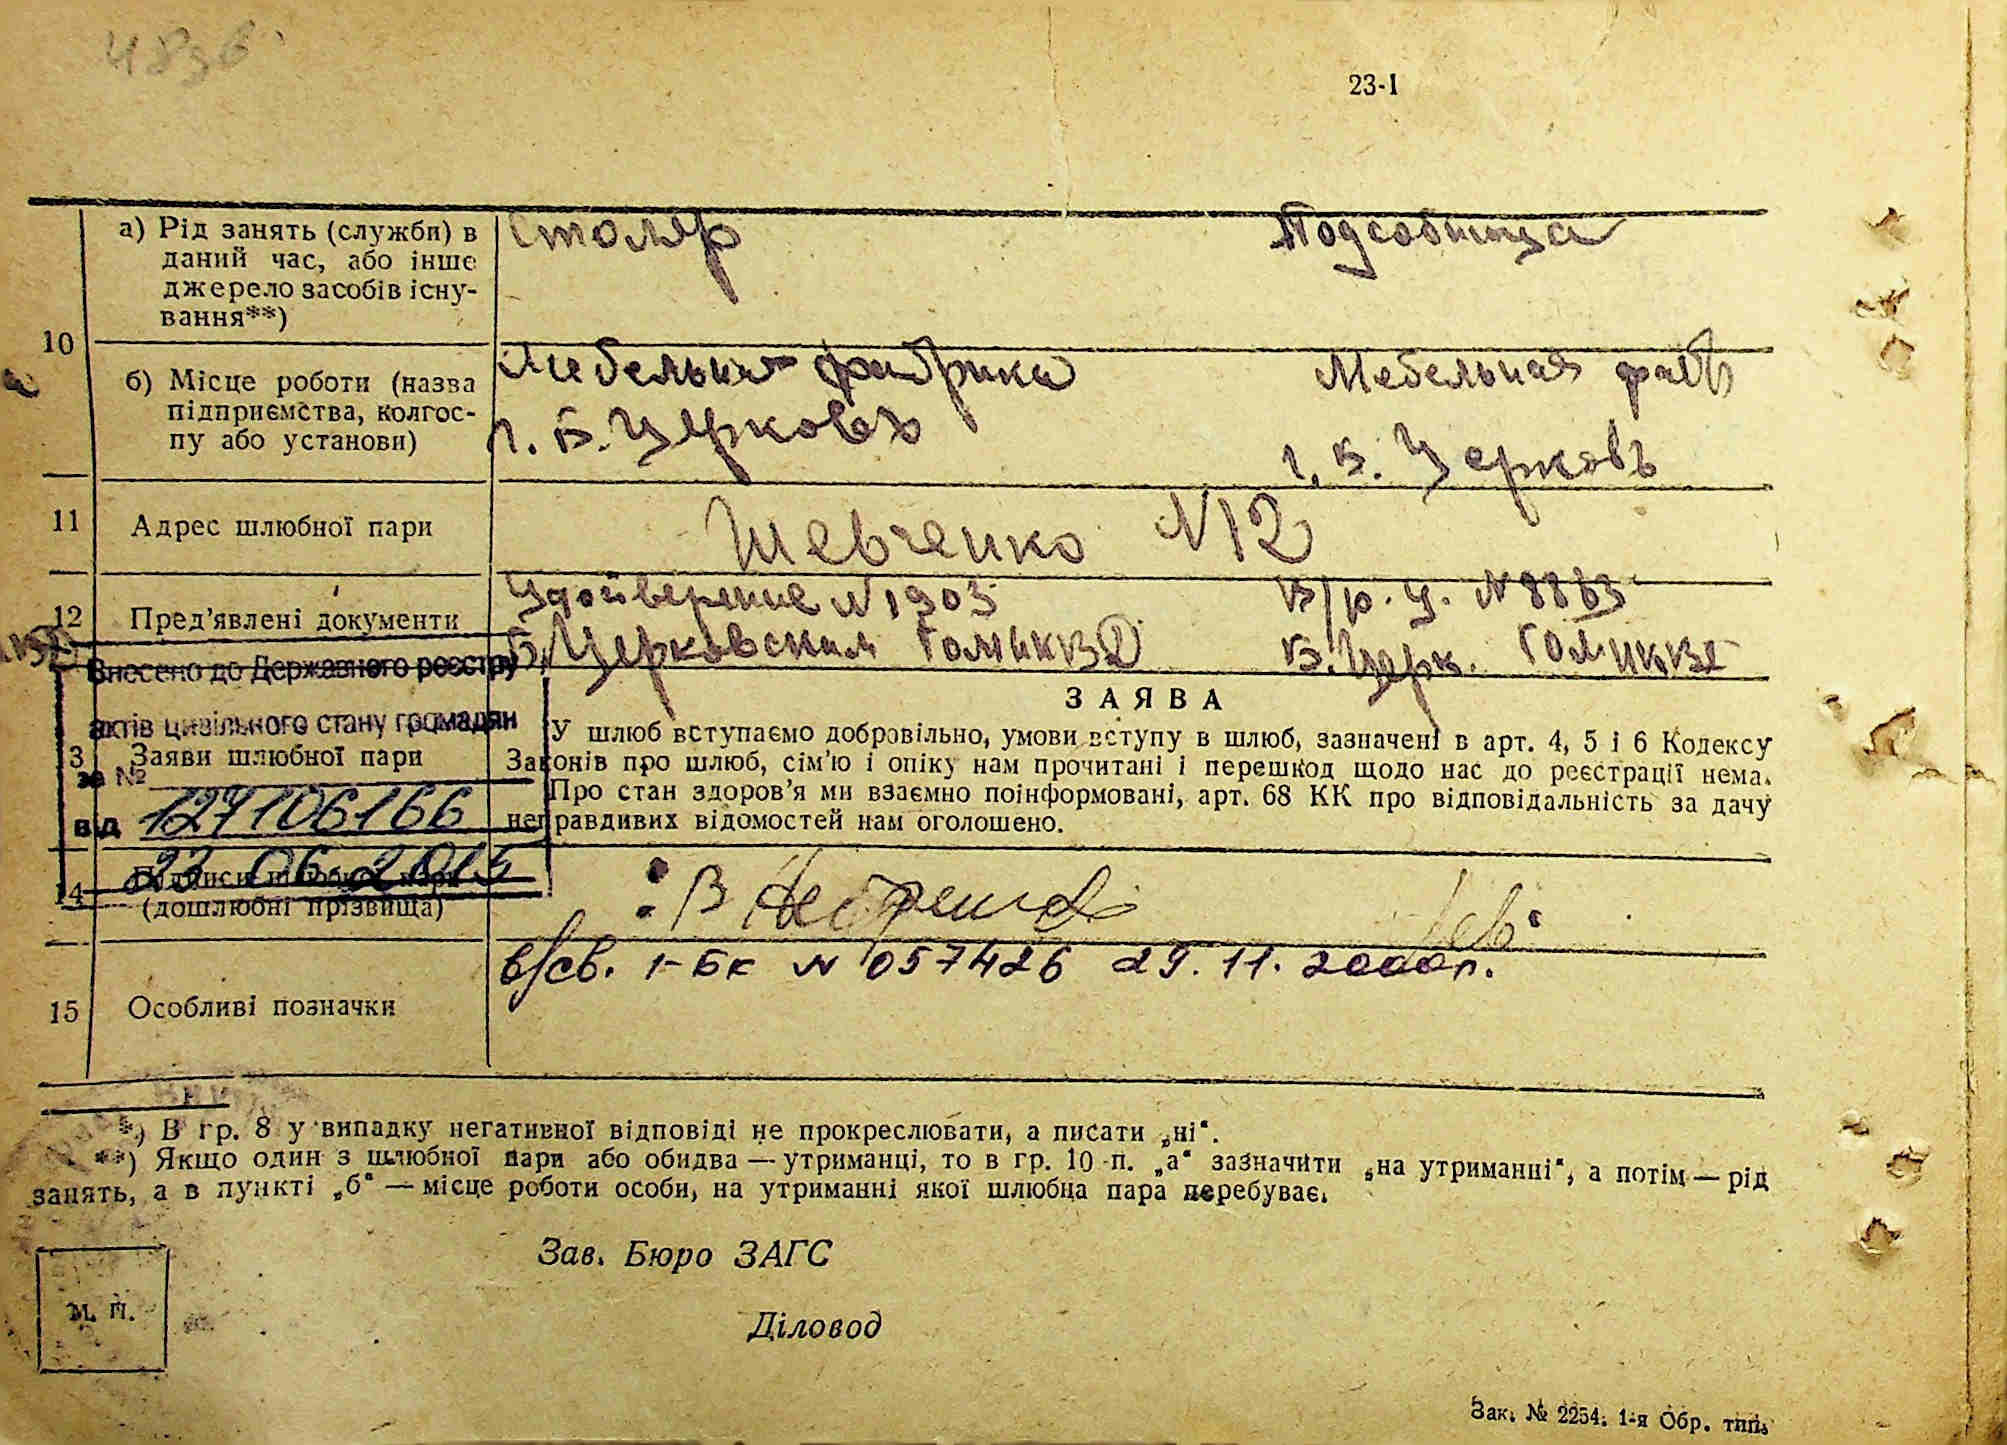 4836
23-I
а) Рід занять (служби) в
даний час, або інше
джерело засобів існу-
вання**)
Столяр
Подсобница
10
б) Місце роботи (назва
підприємства, колгос-
пу або установи)
Мебельная фабрика
г. Б. Церковь
Мебельная фабр
г. Б. Церковь
11
Адрес шлюбної пари
Шевченко № 12
12
Пред'явлені документи
Удойверение № 1903
Б. Церковским ГОМНКВД
В/р. У. № 8863
Б. Церк. ГОМНКВД
Внесено до Державного реєстру
актів цивільного стану громадян
за №
127106166
від
23 06 2015
3
Заяви шлюбної пари
ЗАЯВА
У шлюб вступаємо добровільно, умови вступу в шлюб, зазначені в арт. 4, 5 і 6 Кодексу
Законів про шлюб, сім'ю і опіку нам прочитані і перешкод щодо нас до реєстрації нема.
Про стан здоров'я ми взаємно поінформовані, арт. 68 КК про відповідальність за дачу
неправдивих відомостей нам оголошено.
14
Підписи шлюбної пари
(дошлюбні прізвища)
15
Особливі позначки
в/св. І-БК № 057426 29.11.2000р.
*) В гр. 8 у випадку негативної відповіді не прокреслювати, а писати „ні“.
**) Якщо один з шлюбної пари або обидва — утриманці, то в гр. 10 п. „а“ зазначити „на утриманні“, а потім — рід
занять, а в пункті „б“ — місце роботи особи, на утриманні якої шлюбна пара перебуває.
Зав. Бюро ЗАГС
М. П.
Діловод
Зак. № 2254. 1-я Обр. тип.